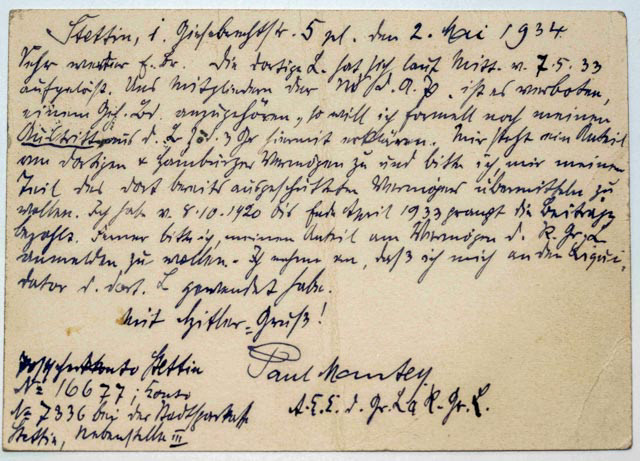 Stettin, i. Giesebrechtstr. 5 pt. den 2. Mai 1934
Sehr werter E. Br. Die dortige L. hat sich laut Mitt. v. 7.5.33
aufgelöst. Uns Mitgliedern der N.S.D.A.P. ist es verboten,
einem Geh. Bd. anzugehören, so will ich formell noch meinen
Austritt aus d. L z. d. 3 Gr hiermit erklären. Mir steht ein Anteil
am dortigen & Hamburger Vermögen zu und bitte ich, mir meinen
Teil des dort bereits ausgeschütteten Vermögens übermitteln zu
wollen. Ich habe v. 8.10.1920 bis Ende April 1933 prompt die Beiträge
bezahlt. Ferner bitte ich, meinen Anteil am Vermögen d. K. Gr. L
anmelden zu wollen. - Ich nehme an, daß ich mich an den Liqui-
dator d. dort. L gewendet habe.
Mit Hitler-Gruß!
Paul Mantey
A.E.E. d. Gr. L a K. Gr. L.
Postscheckkonto Stettin
No 16677; Konto
No 7336 bei der Stadtsparkasse
Stettin, Nebenstelle III